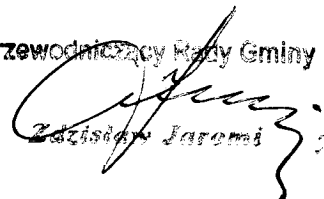 zewodniczący Rady Gminy
Zdzisław Jaromi